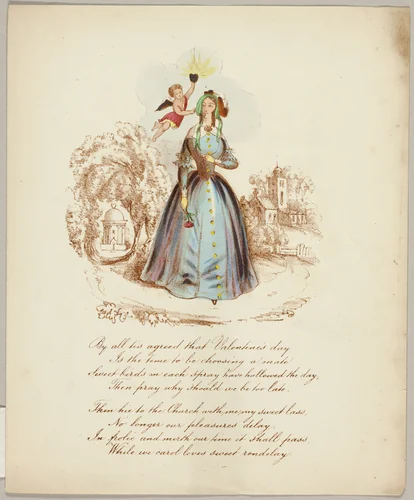 By all tis agreed that Valentine's day
Is the time to be choosing a mate
Sweet birds on each spray have hallowed the day,
Then pray why should we be too late.
Then hie to the Church with me my sweet lass
No longer our pleasures delay
In frolic and mirth our time it shall pass
While we carol loves sweet rondelay